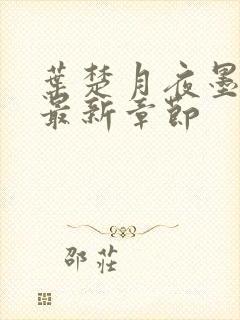 葉楚月夜墨
最新章節
邵莊